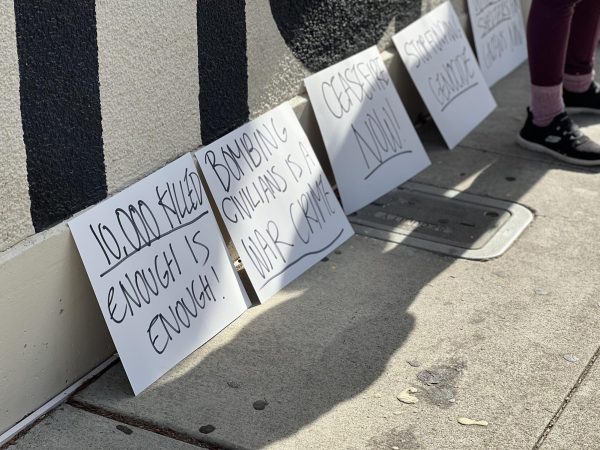 10,000 KILLED
ENOUGH IS
ENOUGH!
BOMBING
CIVILIANS IS A
WAR CRIME
CEASEFIRE
NOW!
STOP FUNDING
GENOCIDE